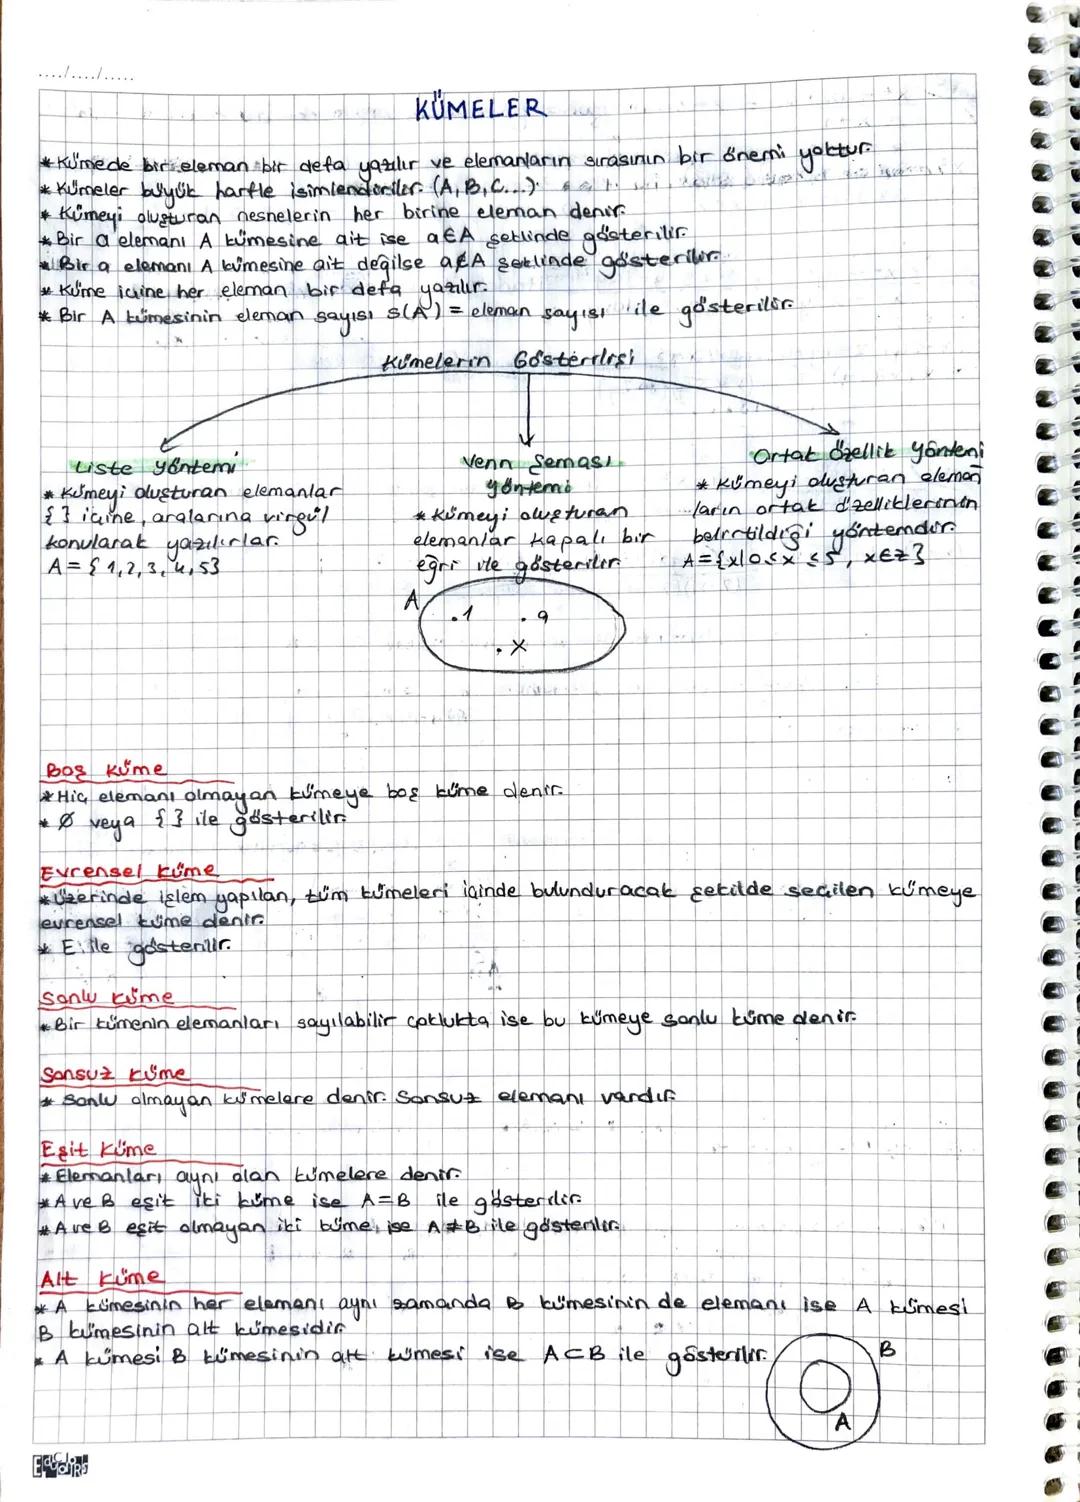 ..../..../.....
KÜMELER
* Kümede bir eleman bir defa yazılır ve elemanların sırasının bir önemi yoktur.
* Kümeler büyük harfle isimlendirilir. (A, B, C...).
* Kümeyi oluşturan nesnelerin her birine eleman denir.
* Bir a elemanı A kümesine ait ise a∈A şeklinde gösterilir.
* Bir a elemanı A kümesine ait değilse a∉A şeklinde gösterilir.
* Küme içine her eleman bir defa yazılır.
* Bir A kümesinin eleman sayısı s(A) = eleman sayısı ile gösterilir.
Kümelerin Gösterilişi
Liste yöntemi
* Kümeyi oluşturan elemanlar
{ } içine, aralarına virgül
konularak yazılırlar.
A = { 1, 2, 3, 4, 5}
Venn Şeması
yöntemi
* Kümeyi oluşturan
elemanlar kapalı bir
eğri ile gösterilir.
A
.1
. 9
. X
Ortak özellik yöntemi
* Kümeyi oluşturan eleman
ların ortak özelliklerinin
belirtildiği yöntemdir.
A={x|0≤x≤5, x∈z}
Boş Küme
* Hiç elemanı olmayan kümeye boş küme denir.
* Ø veya { } ile gösterilir.
Evrensel küme
* Üzerinde işlem yapılan, tüm kümeleri içinde bulunduracak şekilde seçilen kümeye
evrensel küme denir.
* E ile gösterilir.
Sonlu küme
* Bir kümenin elemanları sayılabilir çoklukta ise bu kümeye sonlu küme denir.
Sonsuz küme
* Sonlu olmayan kümelere denir. Sonsuz elemanı vardır.
Eşit Küme
* Elemanları aynı olan kümelere denir.
* A ve B eşit iki küme ise A=B ile gösterilir.
* A ve B eşit olmayan iki küme ise A≠B ile gösterilir.
Alt Küme
* A kümesinin her elemanı aynı zamanda B kümesinin de elemanı ise A kümesi
B kümesinin alt kümesidir.
* A kümesi B kümesinin alt kümesi ise A⊂B ile gösterilir.
B
A